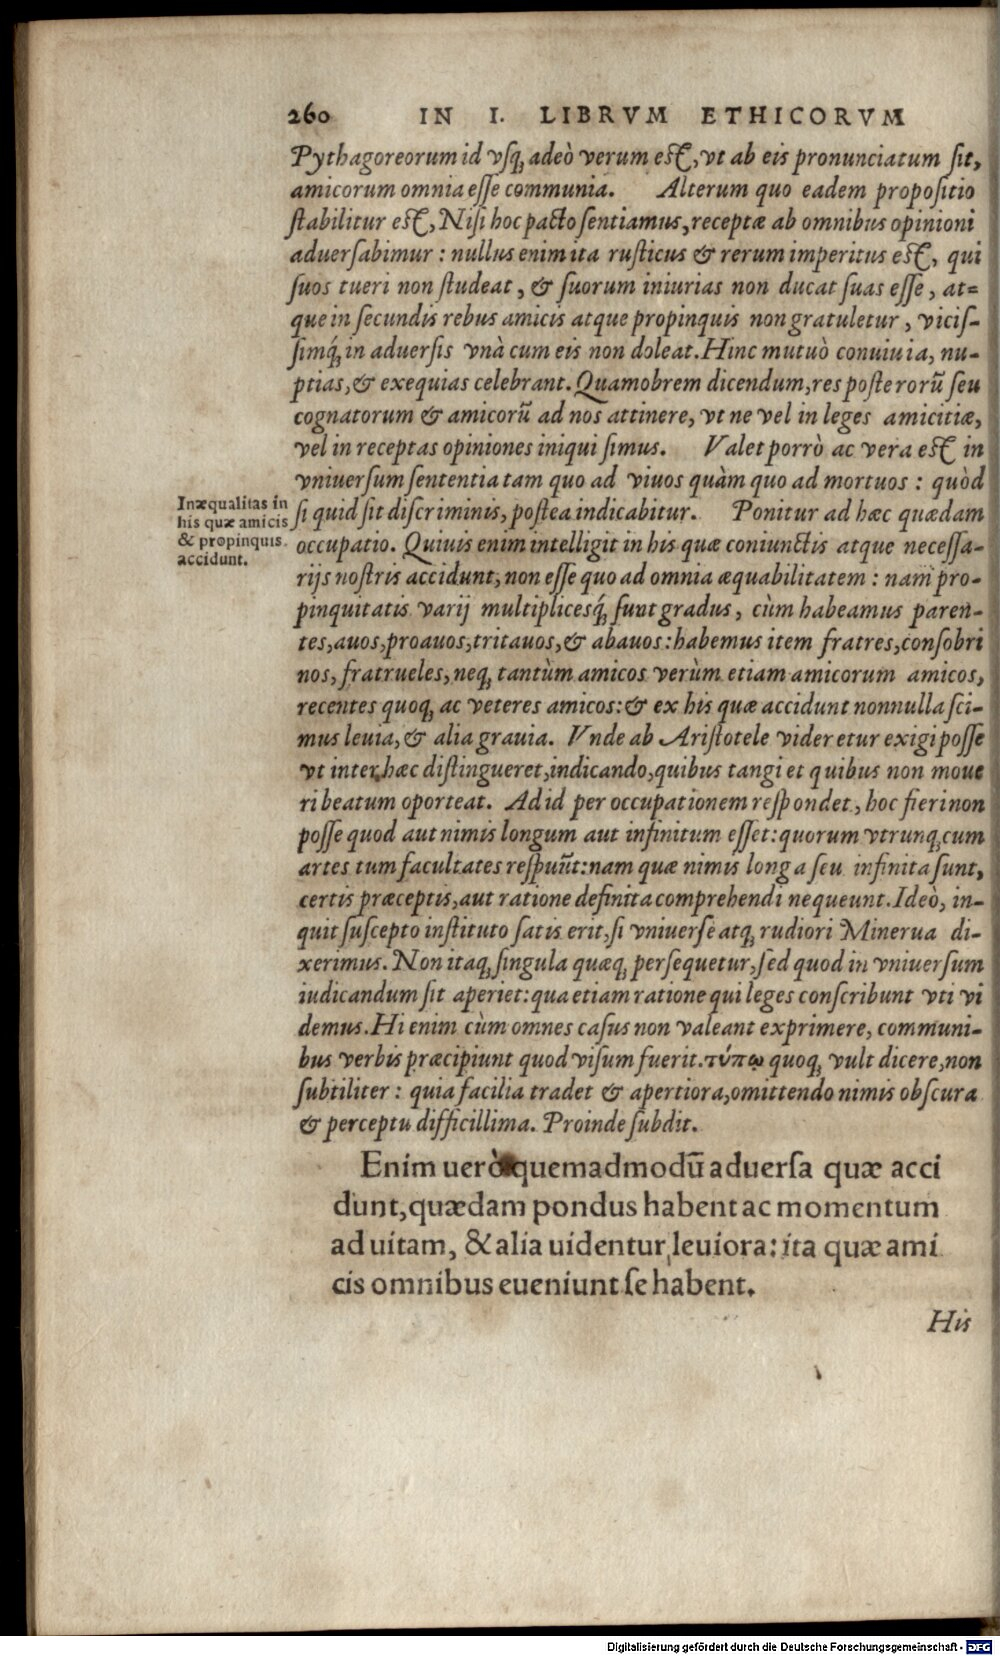 260 IN I. LIBRVM ETHICORVM
Pythagoreorum id vſq; adeò verum eſt, vt ab eis pronunciatum ſit,
amicorum omnia eſſe communia. Alterum quo eadem propoſitio
ſtabilitur eſt, Niſi hoc pacto ſentiamus, receptæ ab omnibus opinioni
aduerſabimur : nullus enim ita ruſticus & rerum imperitus eſt, qui
ſuos tueri non ſtudeat, & ſuorum iniurias non ducat ſuas eſſe, at=
que in ſecundis rebus amicis atque propinquis non gratuletur, viciſ-
ſimq́; in aduerſis vnà cum eis non doleat. Hinc mutuò conuiuia, nu-
ptias, & exequias celebrant. Quamobrem dicendum, res poſterorū ſeu
cognatorum & amicorū ad nos attinere, vt ne vel in leges amicitiæ,
vel in receptas opiniones iniqui ſimus. Valet porrò ac vera eſt in
vniuerſum ſententia tam quo ad viuos quàm quo ad mortuos : quòd
ſi quid ſit diſcriminis, poſtea indicabitur. Ponitur ad hæc quædam
occupatio. Quiuis enim intelligit in his quæ coniunctis atque neceſſa-
rijs noſtris accidunt, non eſſe quo ad omnia æquabilitatem : nam pro-
pinquitatis varij multiplicesq́; ſunt gradus, cùm habeamus paren-
tes, auos, proauos, tritauos, & abauos : habemus item fratres, conſobri
nos, fratrueles, neq; tantùm amicos verùm etiam amicorum amicos,
recentes quoq; ac veteres amicos : & ex his quæ accidunt nonnulla ſci-
mus leuia, & alia grauia. Vnde ab Ariſtotele videretur exigi poſſe
vt inter hæc diſtingueret, indicando, quibus tangi et quibus non moue
ri beatum oporteat. Ad id per occupationem reſpondet, hoc fieri non
poſſe quod aut nimis longum aut infinitum eſſet : quorum vtrunq; cum
artes tum facultates reſpuūt : nam quæ nimis longa ſeu infinita ſunt,
certis præceptis, aut ratione definita comprehendi nequeunt. Ideò, in-
quit ſuſcepto inſtituto ſatis erit, ſi vniuerſe atq; rudiori Minerua di-
xerimus. Non itaq; ſingula quæq; perſequetur, ſed quod in vniuerſum
iudicandum ſit aperiet : qua etiam ratione qui leges conſcribunt vti vi
demus. Hi enim cùm omnes caſus non valeant exprimere, communi-
bus verbis præcipiunt quod viſum fuerit. τύπῳ quoq; vult dicere, non
ſubtiliter : quia facilia tradet & apertiora, omittendo nimis obſcura
& perceptu difficillima. Proinde ſubdit.
Inæqualitas in
his quæ amicis
& propinquis
accidunt.
Enim uerò quemadmodū aduerſa quæ acci
dunt, quædam pondus habent ac momentum
ad uitam, & alia uidentur leuiora : ita quæ ami
cis omnibus eueniunt ſe habent.
His
Digitalisierung gefördert durch die Deutsche Forschungsgemeinschaft - DFG